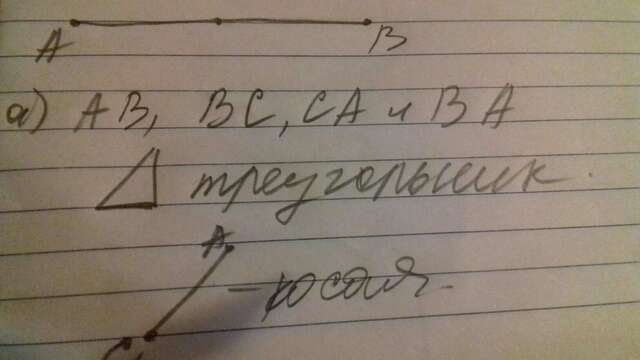 A B
а) AB, BC, CA и BA
треугольник.
A
- косая.
C